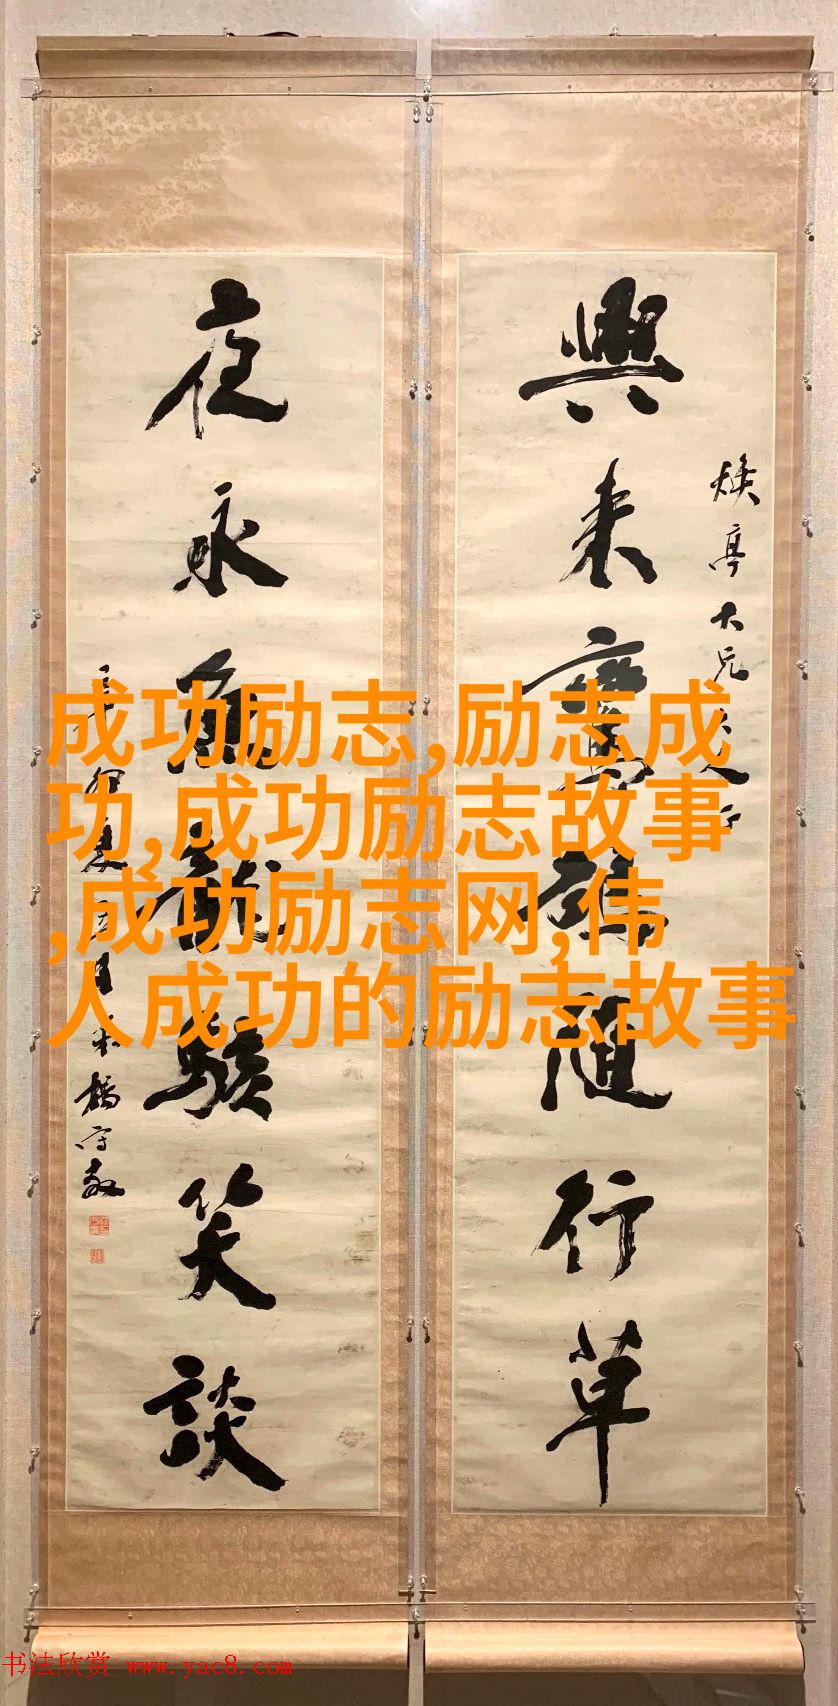 成功励志,励志成
功,成功励志故事
,成功励志网,伟
人成功的励志故事
煥亭大兄
興來隨行草
夜永駭笑談
楊守敬
书法欣赏 www.yac8.com